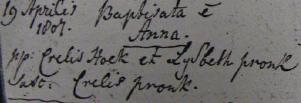 19 Aprilis Baptisata ē
1807. Anna.
pp: Crelis Hoek et Lysbeth pronk
susc: Crelis pronk.